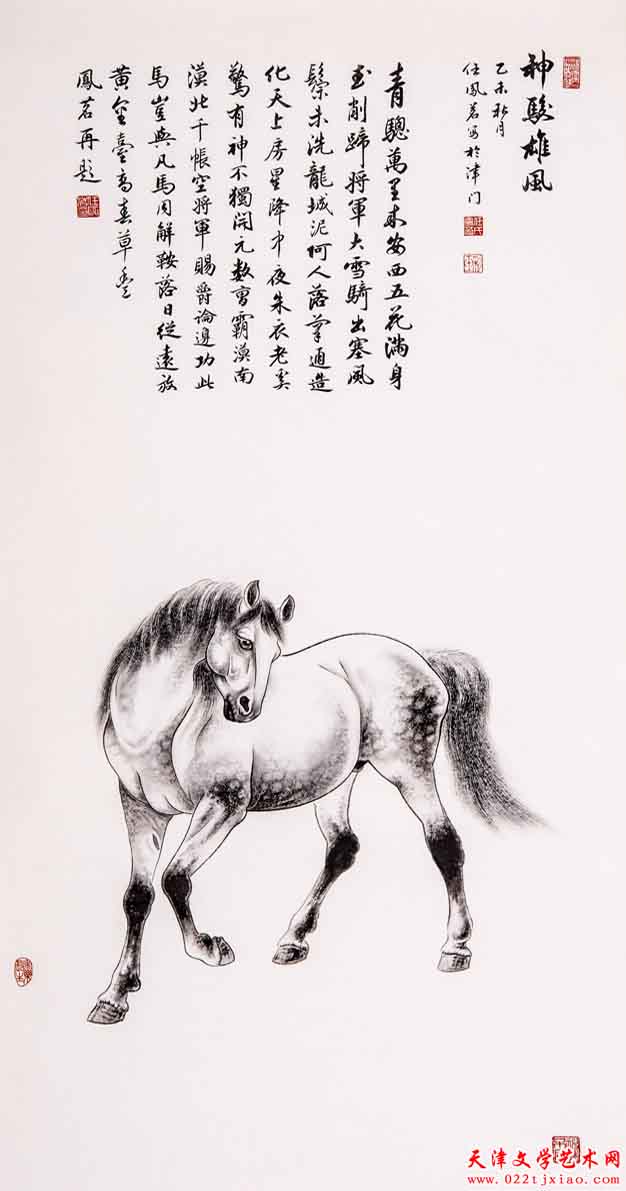 神駿雄風
乙未秋月
任鳳茗写於津门
青驄萬里來安西五花滿身
玉削蹄將軍大雪騎出塞風
鬃未洗龍城泥何人落筆通造
化天上房星降中夜朱衣老奚
驚有神不獨開元數曹霸漠南
漠北千帳空將軍賜爵論邊功此
馬豈與凡馬同解鞍落日從遠放
黃金臺高春草豐
鳳茗再題
天津文学艺术网
www.022tjxiao.com